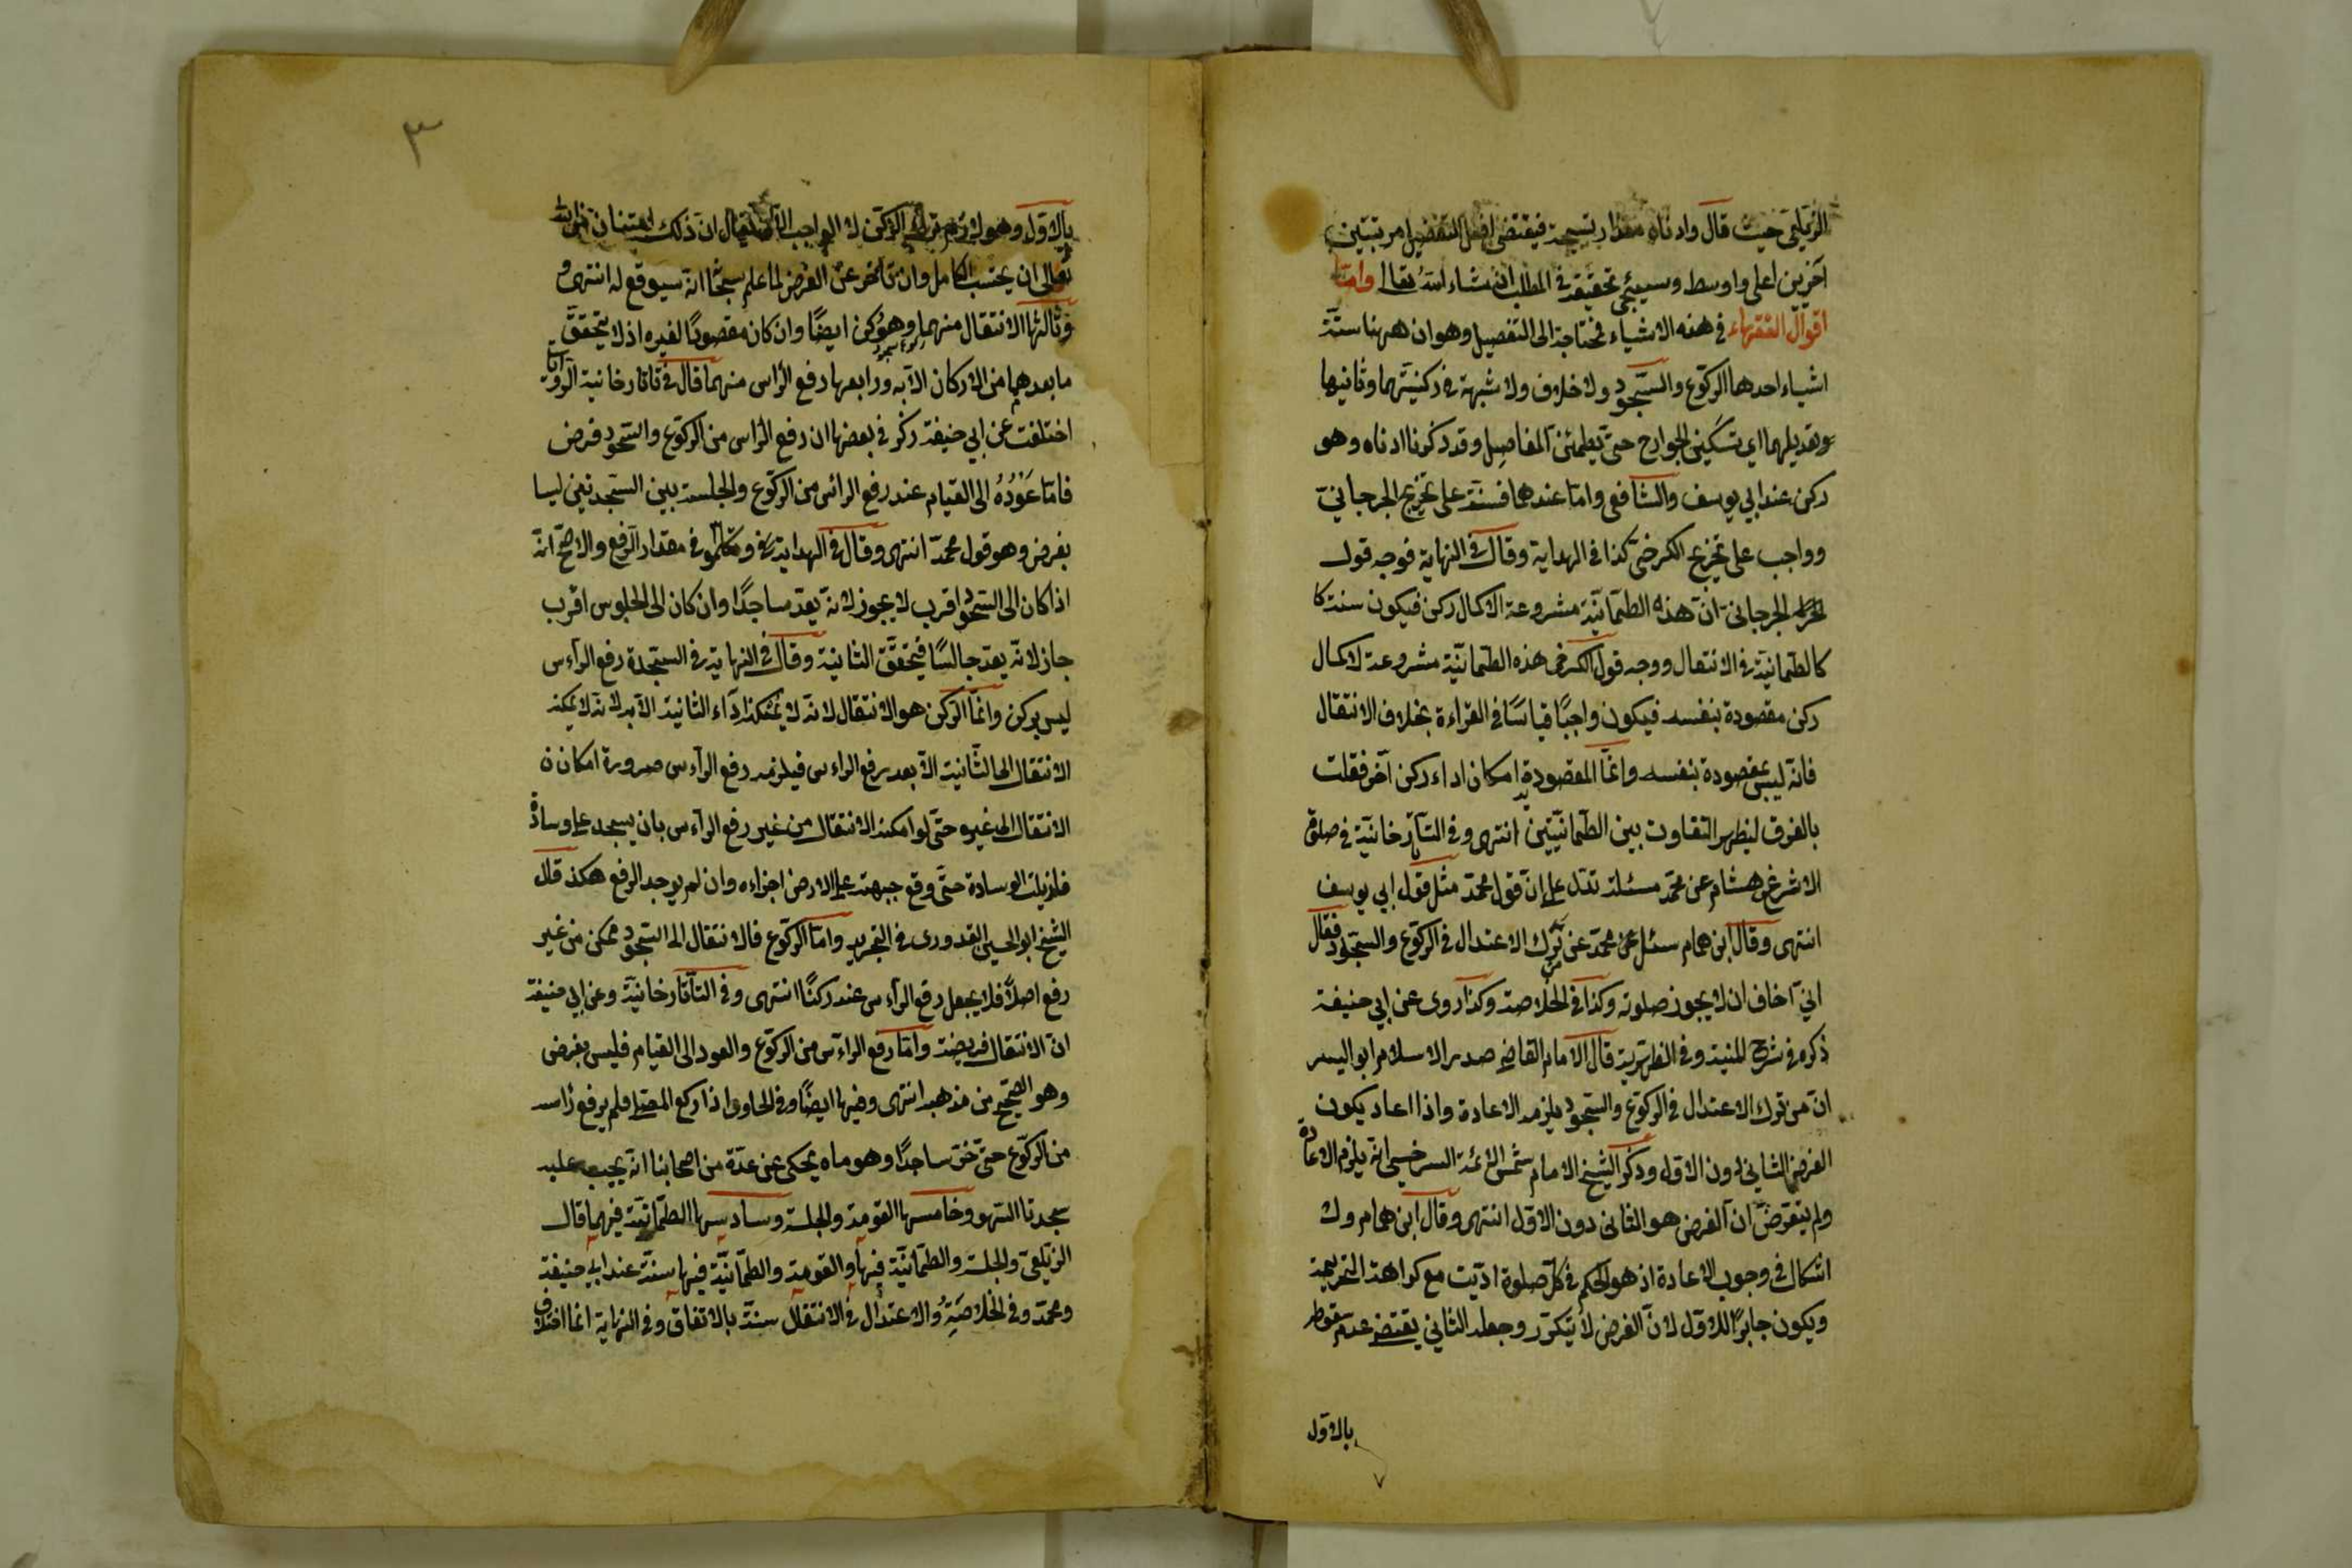 الزيلعي حيث قال وادناه مقدار تسبيحة فيقتضي افعل التفضيل مرتبتين
آخرين اعلى واوسط وسيجئ تحقيقه في المطلب ان شاء الله تعالى واما
اقوال الفقهاء في هذه الاشياء فمحتاجة الى التفصيل وهو ان ههنا ستة
اشياء احدها الركوع والسجود ولا خلاف ولا شبهة في ركنيتهما وثانيها
وتعديلهما اي تسكين الجوارح حتى يطمئن المفاصل وقد ذكرنا ادناه وهو
ركن عند ابي يوسف والشافعي واما عندهما فسنة على تخريج الجرجاني
وواجب على تخريج الكرخي كذا في الهداية وقال في النهاية فوجه قول
الجرجاني ان هذه الطمانيّة مشروعة لاكمال ركن فيكون سنة كا
كالطمانيّة في الانتقال ووجه قول الكرخي هذه الطمانيّة مشروعة لاكمال
ركن مقصودة بنفسه فيكون واجبًا قياسًا في القراءة بخلاف الانتقال
فانه ليس بمقصودة بنفسه وانما المقصود به امكان اداء ركن آخر فقلت
بالفرق ليظهر التفاوت بين الطمانيّتين انتهى وفي التاتارخانيّة في صلوة
الاشرعن هشام عن محمد مسئلة تدل على ان قول محمد مثل قول ابي يوسف
انتهى وقال ابن همام سئل عن محمد عن ترك الاعتدال في الركوع والسجود فقال
اني اخاف ان لا يجوز صلوته وكذا في الخلاصة وكذا روى عن ابي حنيفة
ذكره في شرح المنية وفي الظهيرية قال الامام القاضي صدر الاسلام ابو اليسر
ان من ترك الاعتدال في الركوع والسجود يلزمه الاعادة واذا اعاد يكون
الفرض الثاني دون الاول وذكر الشيخ الامام شمس الائمة السرخسي انه يلزم الاعادة
ولم يتعرض ان الفرض هو الثاني دون الاول انتهى وقال ابن همام ولا
اشكال في وجوب الاعادة اذ هو الحكم في كل صلوة اديت مع كراهة التحريمة
ويكون جابرًا للاول لان الفرض لا يتكرر وجعله الثاني يقتضي عدم سقوط
بالاول
٣
بالاول وهو لازم ترك الركن لا الواجب الا ان يقال ان ذلك امتنان من الله
تعالى ان يحتسب الكامل وان تأخر عن الفرض لما علم سبحانه سيوقع له انتهى و
وثالثها الانتقال منهما وهو ركن ايضًا وان كان مقصودًا لغيره اذ لا يتحقق
ما بعدهما من الاركان الا به ورابعها رفع الرأس منهما قال في تاتارخانية الروايات
اختلفت عن ابي حنيفة ذكر في بعضها ان رفع الرأس من الركوع والسجود فرض
فاما عَوْدُهُ الى القيام عند رفع الرأس من الركوع والجلسة بين السجدتين ليسا
بفرض وهو قول محمد انتهى وقال في الهداية وتكلموا في مقدار الرفع والاصح انه
اذا كان الى السجود اقرب لا يجوز لانه يعد ساجدًا وان كان الى الجلوس اقرب
جاز لانه يعد جالسًا فيتحقق الثانية وقال في النهاية في السجدة رفع الرأس
ليس بركن وانما الركن هو الانتقال لانه لا يمكنه اداء الثانية الا به لانه لا يمكنه
الانتقال الى الثانية الا بعد رفع الرأس فيلزمه رفع الرأس ضرورة امكان ن
الانتقال الى غيره حتى لو امكنه الانتقال من غير رفع الرأس بان يسجد على وسادة
فازيلت الوسادة حتى وقع جبهته على الارض اجزاءه وان لم يوجد الرفع هكذ قال
الشيخ ابو الحسين القدوري في التجريد واما الركوع فالانتقال الى السجود ممكن من غير
رفع اصلاً فلا يجعل رفع الرأس عنده ركنًا انتهى وفي التاتارخانيّة وعن ابي حنيفة
ان الانتقال فريضة واما رفع الرأس من الركوع والعود الى القيام فليس بفرض
وهو الصحيح من مذهبه انتهى وفيها ايضًا وفي الحاوي اذا ركع المصلي فلم يرفع رأسه
من الركوع حتى خر ساجدًا وهو ساه يحكى عن عدة من اصحابنا انه يجب عليه
سجدتا السهو وخامسها القومة والجلسة وسادسها الطمانيّة فيهما قال
الزيلعي والجلسة والطمانيّة فيها والقومة والطمانيّة فيها سنة عند ابي حنيفة
ومحمد وفي الخلاصة والاعتدال في الانتقال سنة بالاتفاق وفي النهاية انما اختلاف